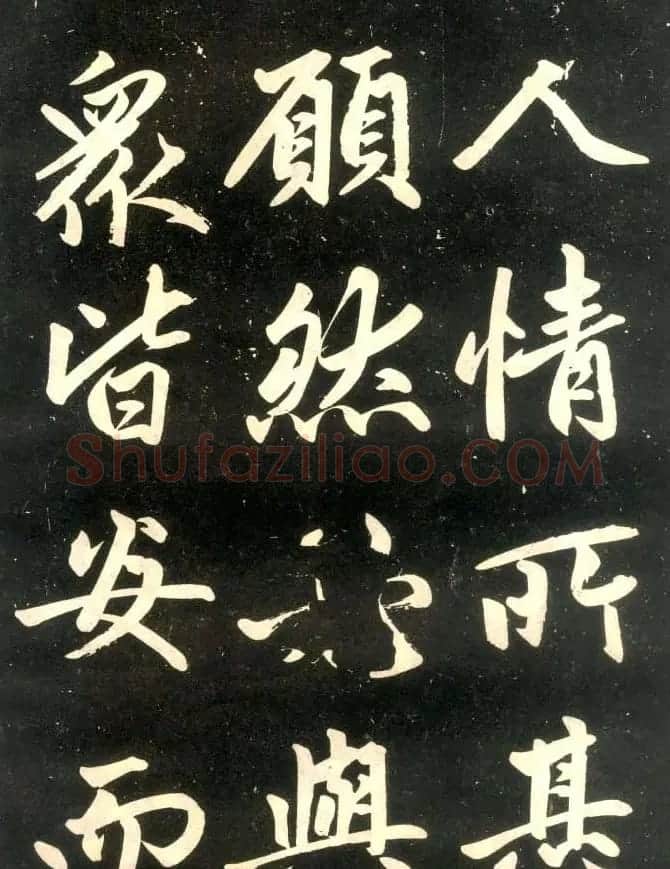 人情所
願然與
衆皆安而
Shufaziliao.COM